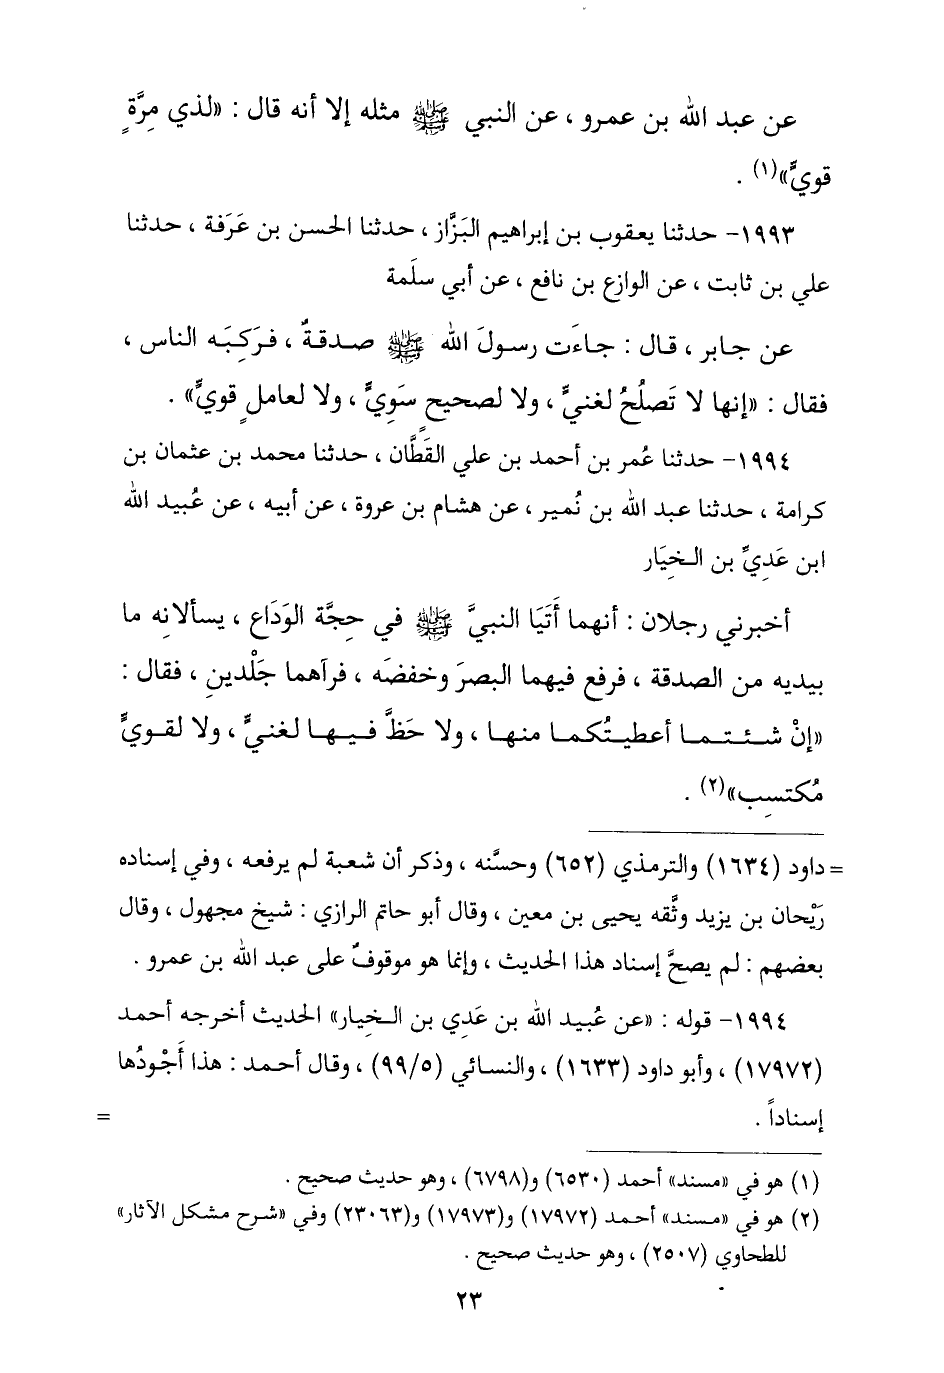 عن عبد الله بن عمرو ، عن النبي ﷺ مثله إلا أنه قال : «لذي مِرَّةٍ
قويٍّ»(١) .
١٩٩٣- حدثنا يعقوب بن إبراهيم البَزَّاز ، حدثنا الحسن بن عَرَفة ، حدثنا
علي بن ثابت ، عن الوازع بن نافع ، عن أبي سلَمة
عن جابر ، قال : جاءَت رسولَ الله ﷺ صدقةٌ ، فرَكِبَه الناس ،
فقال : «إنها لا تَصلُحُ لغنيٍّ ، ولا لصحيحٍ سَوِيٍّ ، ولا لعاملٍ قويٍّ» .
١٩٩٤- حدثنا عُمر بن أحمد بن علي القَطَّان ، حدثنا محمد بن عثمان بن
كرامة ، حدثنا عبد الله بن نُمير ، عن هشام بن عروة ، عن أبيه ، عن عُبيد الله
ابن عَدِيِّ بن الخِيَار
أخبرني رجلان : أنهما أَتَيَا النبيَّ ﷺ في حِجَّة الوَدَاع ، يسألانِه ما
بيديه من الصدقة ، فرفع فيهما البصرَ وخفضَه ، فرآهما جَلْدينِ ، فقال :
«إنْ شئتما أعطيتُكما منها ، ولا حَظَّ فيها لغنيٍّ ، ولا لقويٍّ
مُكتسِبٍ»(٢) .
= داود (١٦٣٤) والترمذي (٦٥٢) وحسَّنه ، وذكر أن شعبة لم يرفعه ، وفي إسناده
رَيْحان بن يزيد وثَّقه يحيى بن معين ، وقال أبو حاتم الرازي : شيخ مجهول ، وقال
بعضهم : لم يصحَّ إسناد هذا الحديث ، وإنما هو موقوفٌ على عبد الله بن عمرو .
١٩٩٤- قوله : «عن عُبيد الله بن عَدِي بن الخِيار» الحديث أخرجه أحمد
(١٧٩٧٢) ، وأبو داود (١٦٣٣) ، والنسائي (٩٩/٥) ، وقال أحمد : هذا أَجْودُها
إسناداً . =
(١) هو في «مسند» أحمد (٦٥٣٠) و(٦٧٩٨) ، وهو حديث صحيح .
(٢) هو في «مسند» أحمد (١٧٩٧٢) و(١٧٩٧٣) و(٢٣٠٦٣) وفي «شرح مشكل الآثار»
للطحاوي (٢٥٠٧) ، وهو حديث صحيح .
٢٣